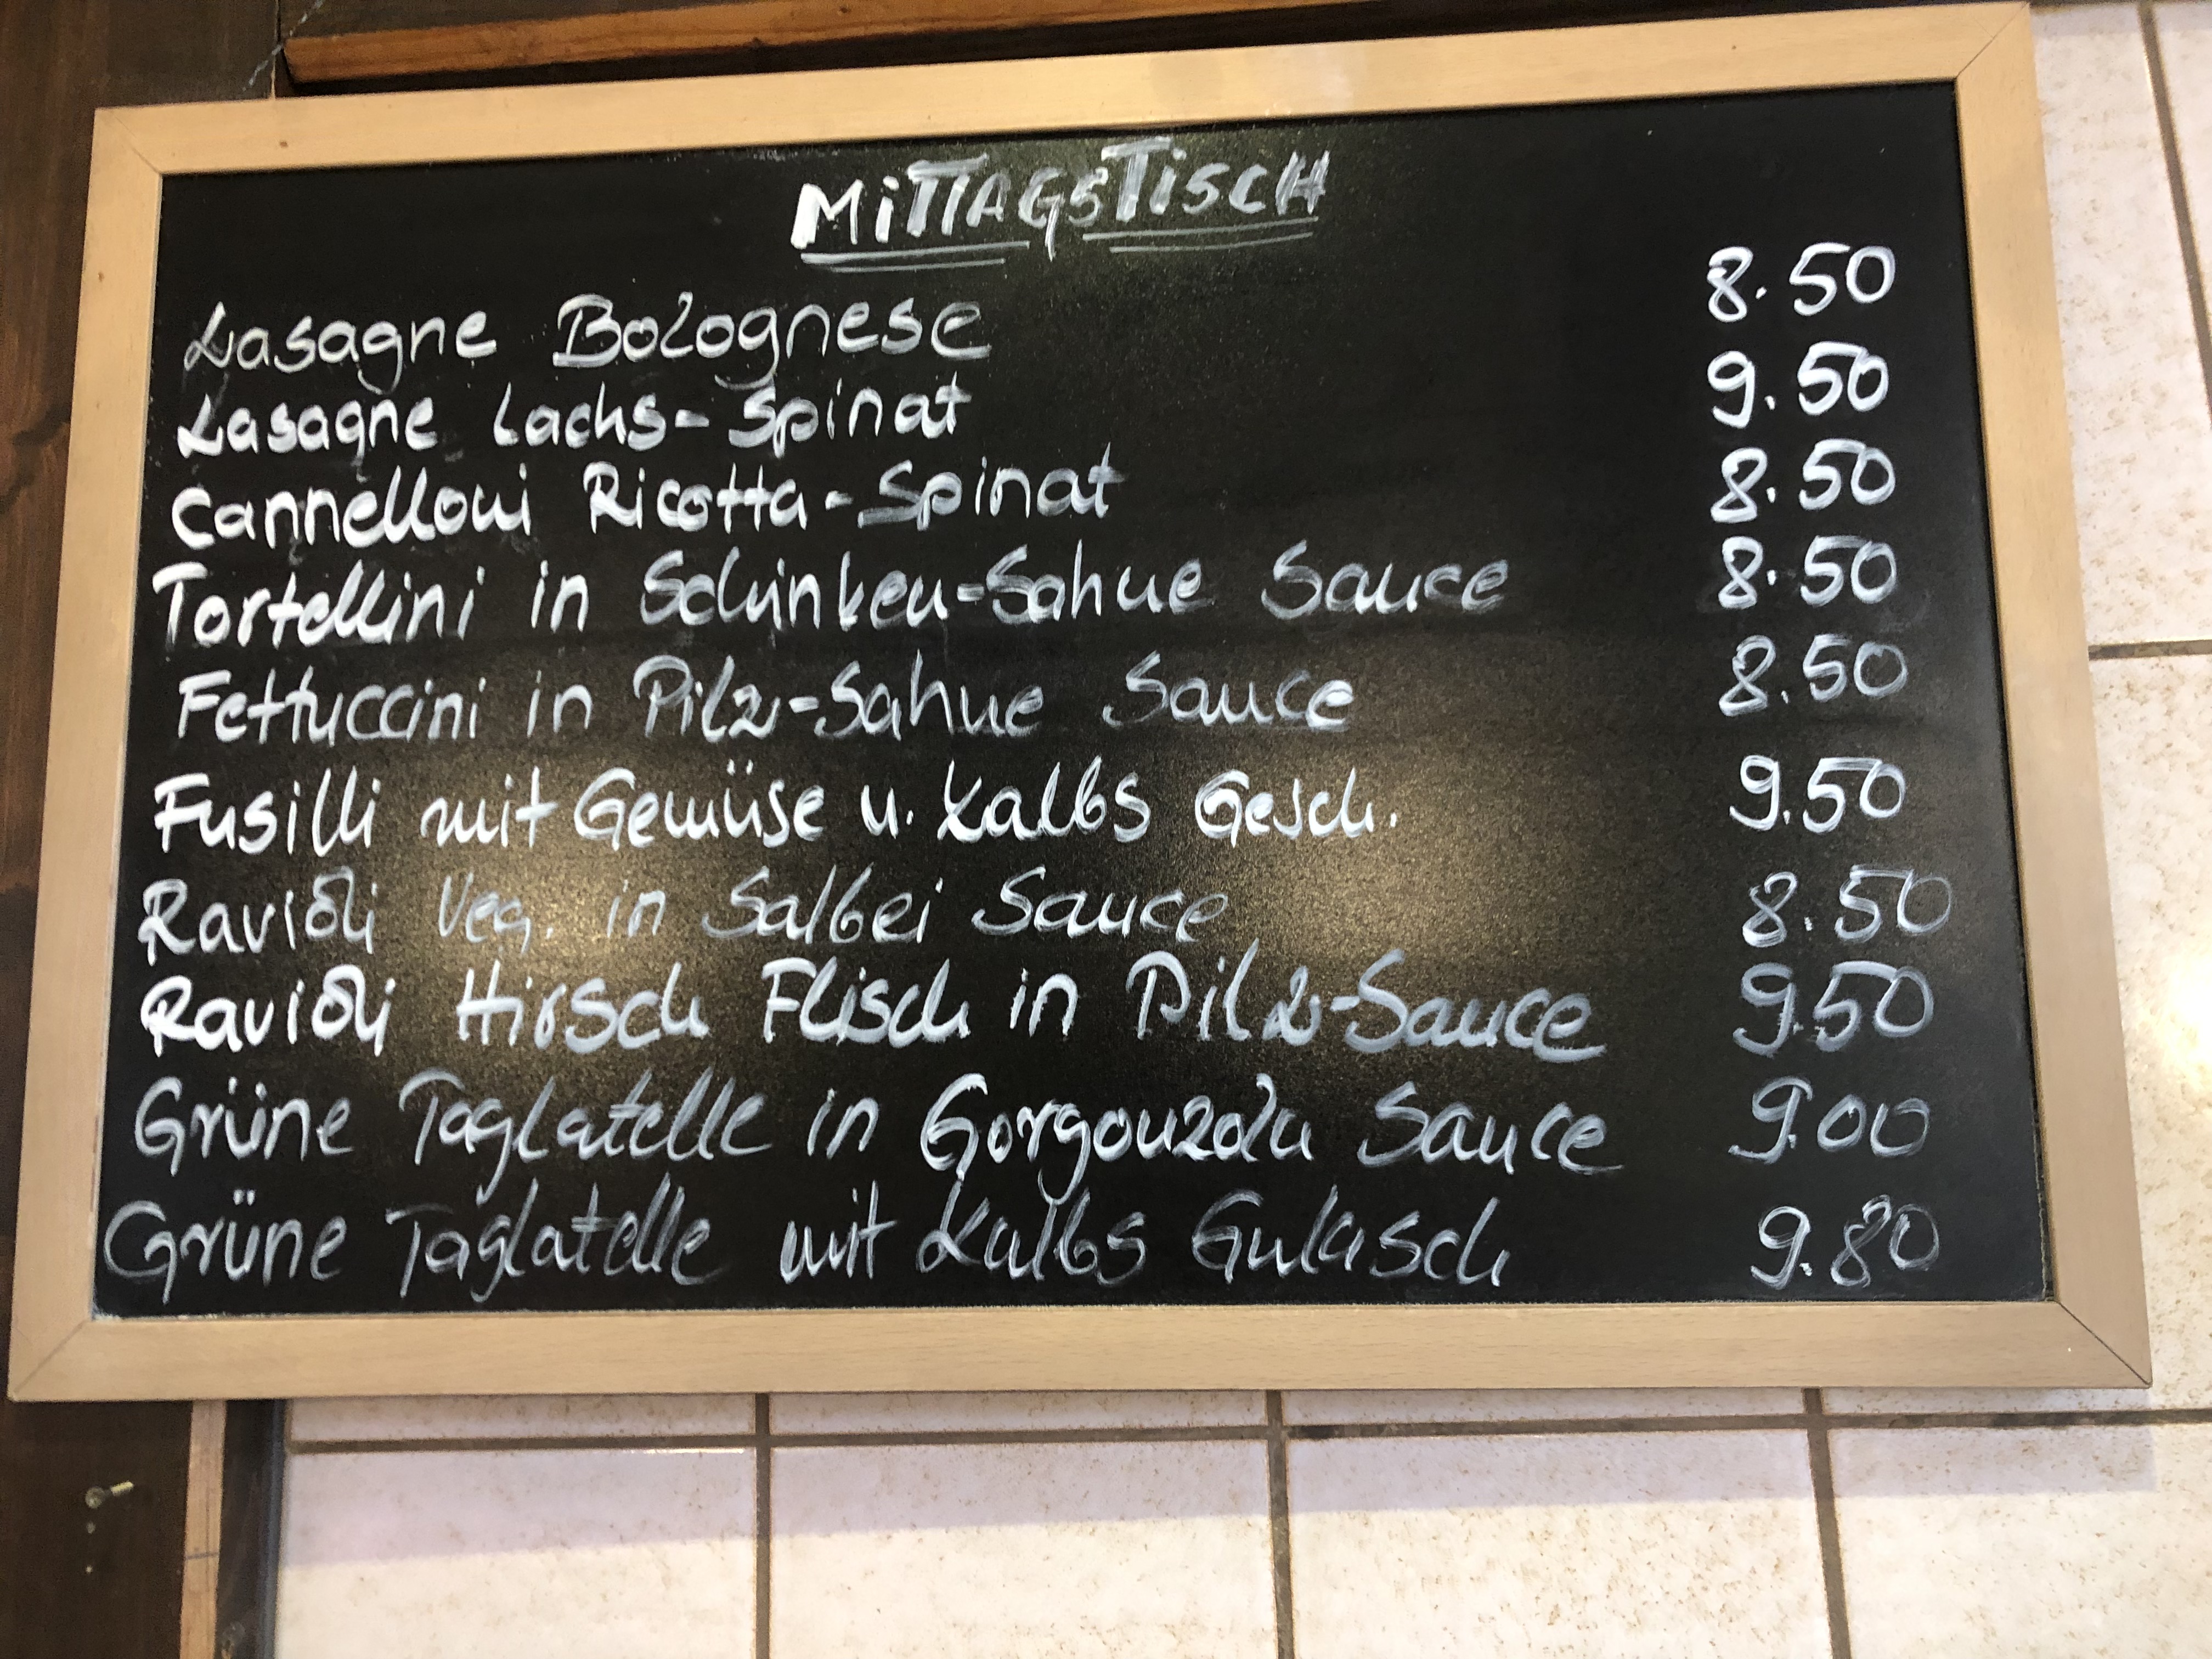 MiTTAGSTiSCH
Lasagne Bolognese 8.50
Lasagne Lachs-Spinat 9.50
Cannelloni Ricotta-Spinat 8.50
Tortellini in Schinken-Sahne Sauce 8.50
Fettuccini in Pilz-Sahne Sauce 8.50
Fusilli mit Gemüse u. Kalbs Gesch. 9.50
Ravioli Veg. in Salbei Sauce 8.50
Ravioli Hirsch Flisch in Pilz-Sauce 9.50
Grüne Taglatelle in Gorgonzola Sauce 9.00
Grüne Taglatelle mit Kalbs Gulasch 9.80